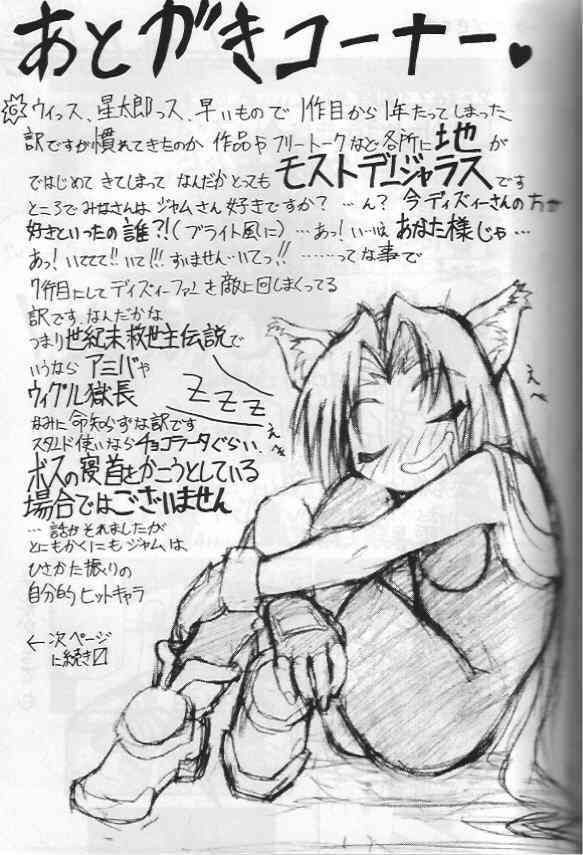 あとがきコーナー♥
ウィっス、星太郎っス、早いもので1作目から1年たってしまった
訳ですが慣れてきたのか 作品やフリートークなど各所に地が
ではじめてきてしまって なんだかとっても モストデンジャラスです
ところでみなさんはジャムさん好きですか? …ん? 今ディズィーさんの方が
好きといったの誰?!(ブライト風に)…あっ! い…いえ あなた様じゃ…
あっ! いててて!! いて!!! すいません…いてっ!! ……ってな事で
7作目にしてディズィーファンを敵に回しまくってる
訳です。なんだかな
つまり世紀末救世主伝説で
いうなら アミバや
ウイグル獄長
なみに命知らずな訳です
スタンド使いならチョコラータぐらい。
ボスの寝首をかこうとしている
場合ではございません
…話がそれましたが
とにもかくにもジャムは、
ひさかた振りの
自分的ヒットキャラ
←次ページ
に続き
ZZZ
えへ
えへ